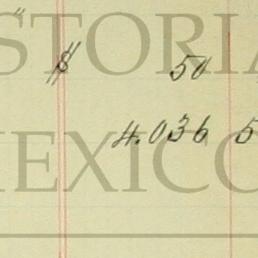 STORIA
" $ 50
4.036 5
MEXICO